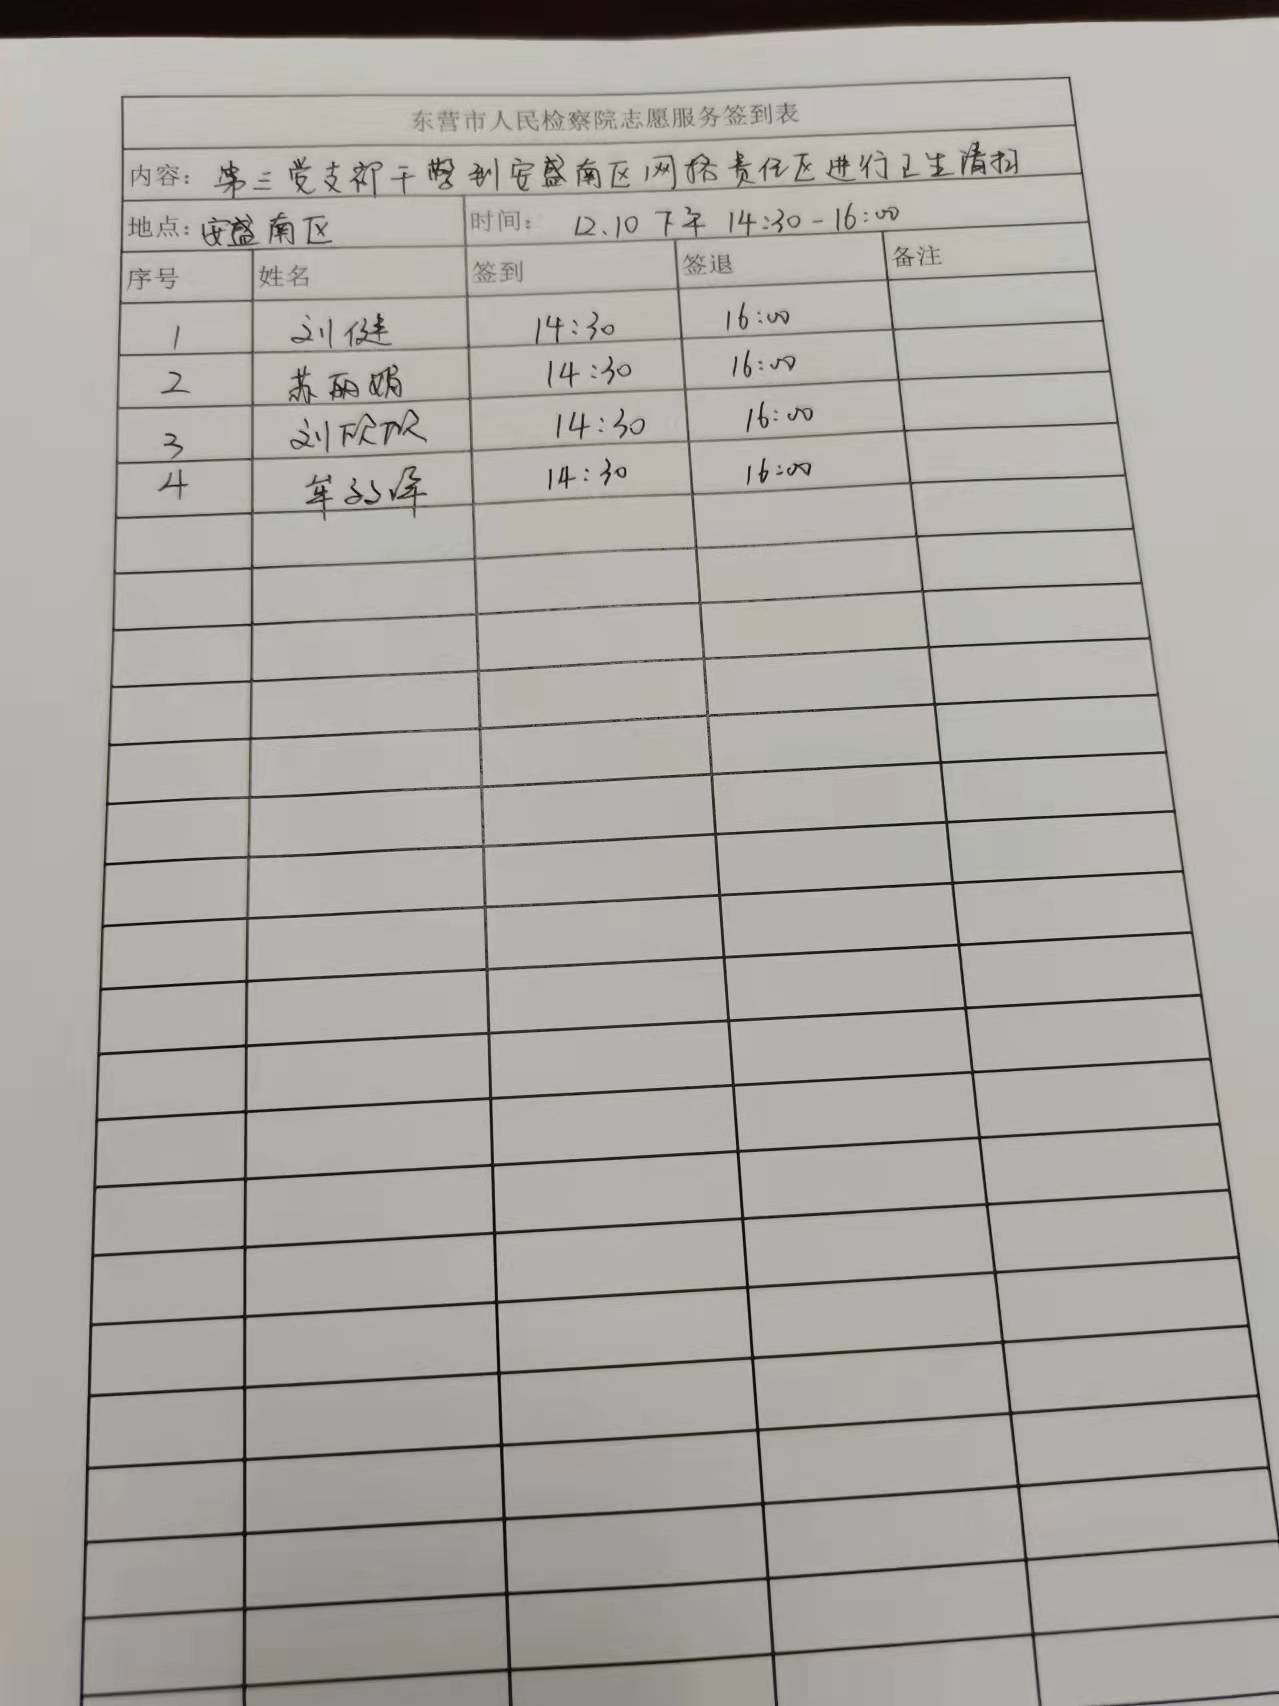 东营市人民检察院志愿服务签到表
内容：第三党支部干警到安盛南区网格责任区进行卫生清扫
地点：安盛南区 时间：12.10 下午 14:30-16:00
序号 姓名 签到 签退 备注
1 刘健 14:30 16:00
2 苏丽娟 14:30 16:00
3 刘欣欣 14:30 16:00
4 14:30 16:00